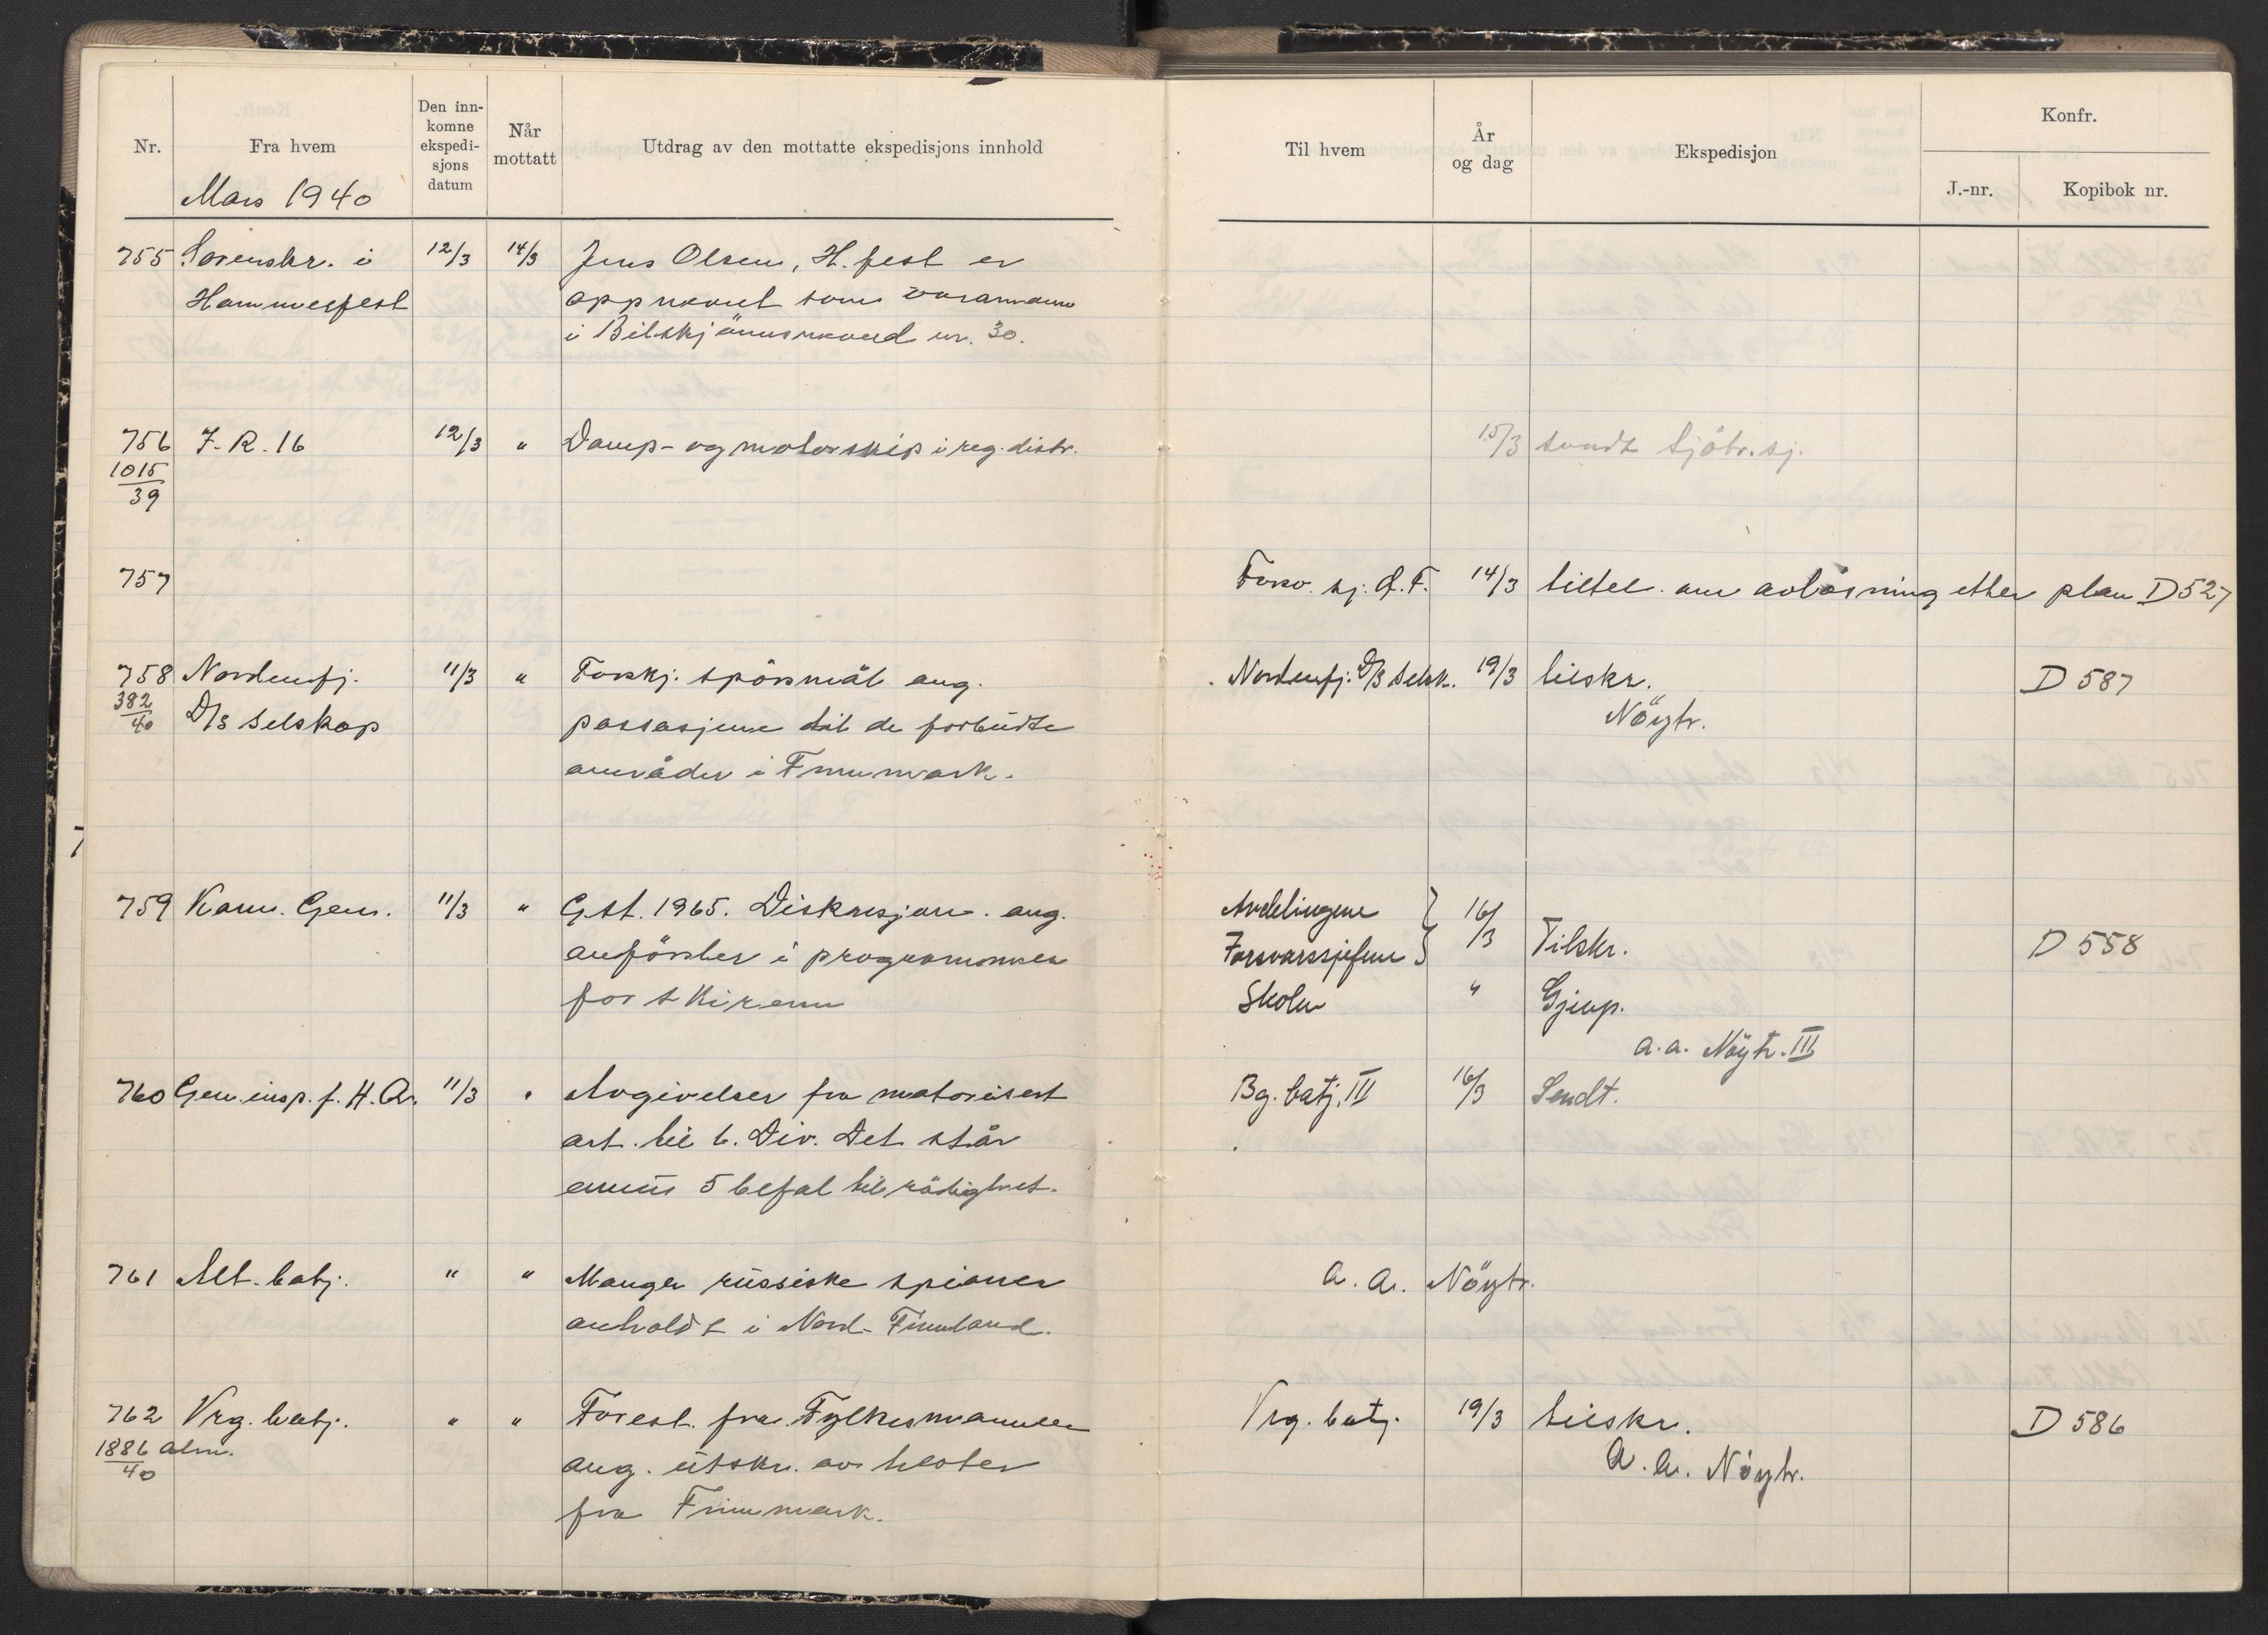 Nr.
Fra hvem
Den inn-
komne
ekspedi-
sjons
datum
Når
mottatt
Utdrag av den mottatte ekspedisjons innhold
Til hvem
År
og dag
Ekspedisjon
Konfr.
J.-nr.
Kopibok nr.
Mars 1940
755 Sorenskr. i 12/3 14/3 Jens Olsen, H.fest er
Hammerfest oppnevnt som varamann
i Bilskjönnsnevnd nr. 30.
756 F. R. 16 12/3 " Damp- og motorskip i reg. distr. 15/3 sendt Sjötr. sj.
1015
39
757 Forsv. sj. Ö.F. 14/3 tiltel. om avlösning etter plan D 527
758 Nordenfj. 11/3 " Forskj. spörsmål ang. Nordenfj. D/S Selsk. 19/3 tilskr. D 587
382
40 D/S Selskap passasjerer til de forbudte Nöytr.
områder i Finnmark.
759 Komm. Gen. 11/3 " Gst. 1965. Diskresjon. ang. Avdelingene } 16/3
anförsler i programmer Forsvarssjefene } Tilskr. D 558
for skirenn Skolen " Gjenp.
a.a. Nöytr. III
760 Gen. insp. f. H. A. 11/3 " Avgivelser fra motorisert Bg. batj. III 16/3 Sendt.
art. til 6. Div. Det står
ennu 5 befal til rådighet.
761 Alt. batj. " " Mange russiske spioner a. a. Nöytr.
anholdt i Nord-Finnland.
762 Vrg. batj. " " Forest. fra Fylkesmannen Vrg. batj. 19/3 tilskr. D 586
1886 alm.
40 ang. utskr. av hester a. a. Nöytr.
fra Finnmark.